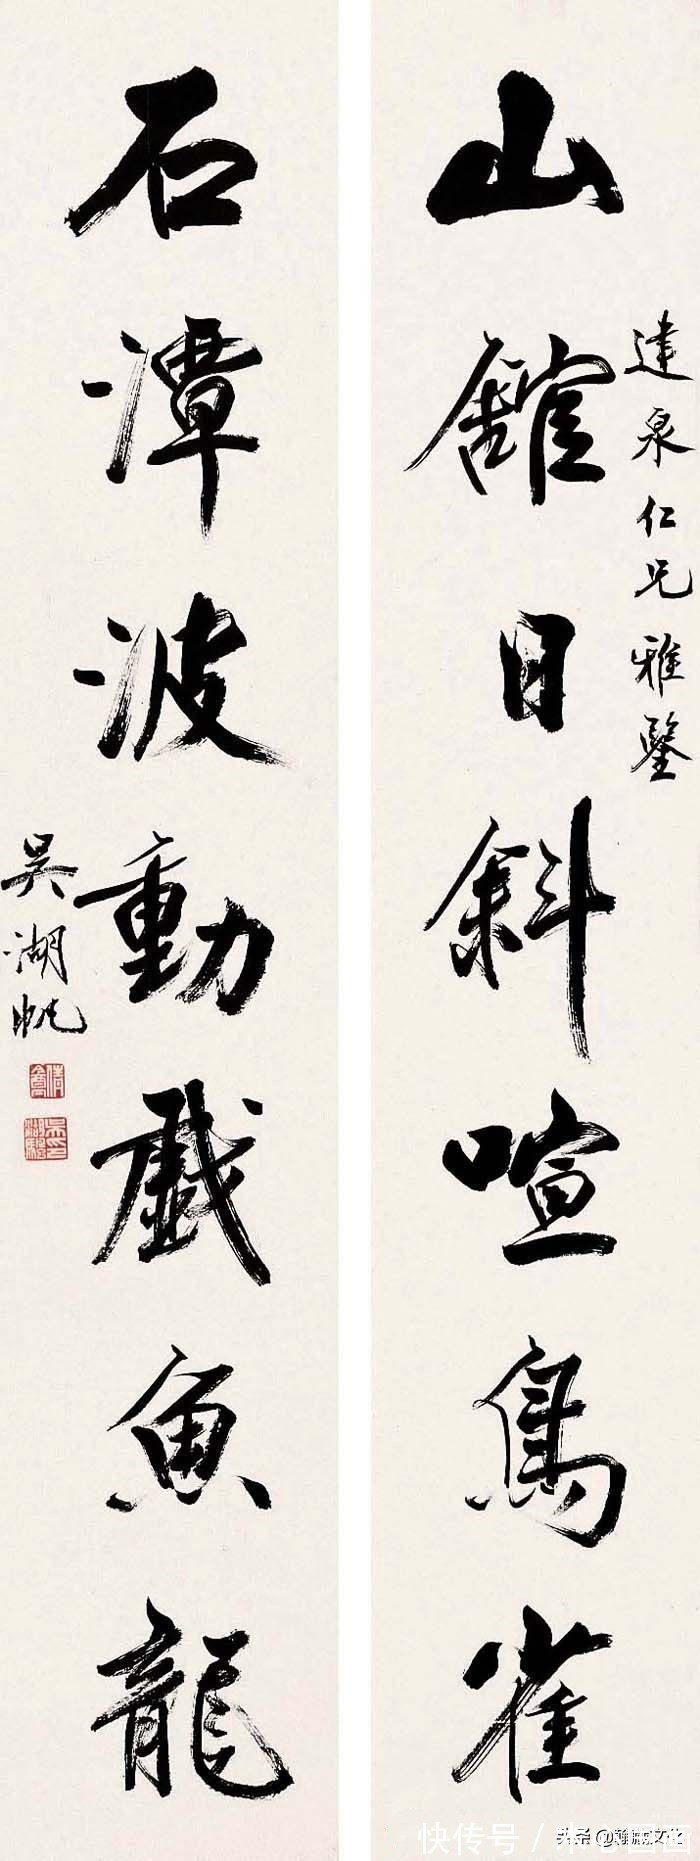 山館日斜喧鳥雀
建泉仁兄雅鑒
石潭波動戲魚龍
吳湖帆
快传号/
头条@翰墨文化